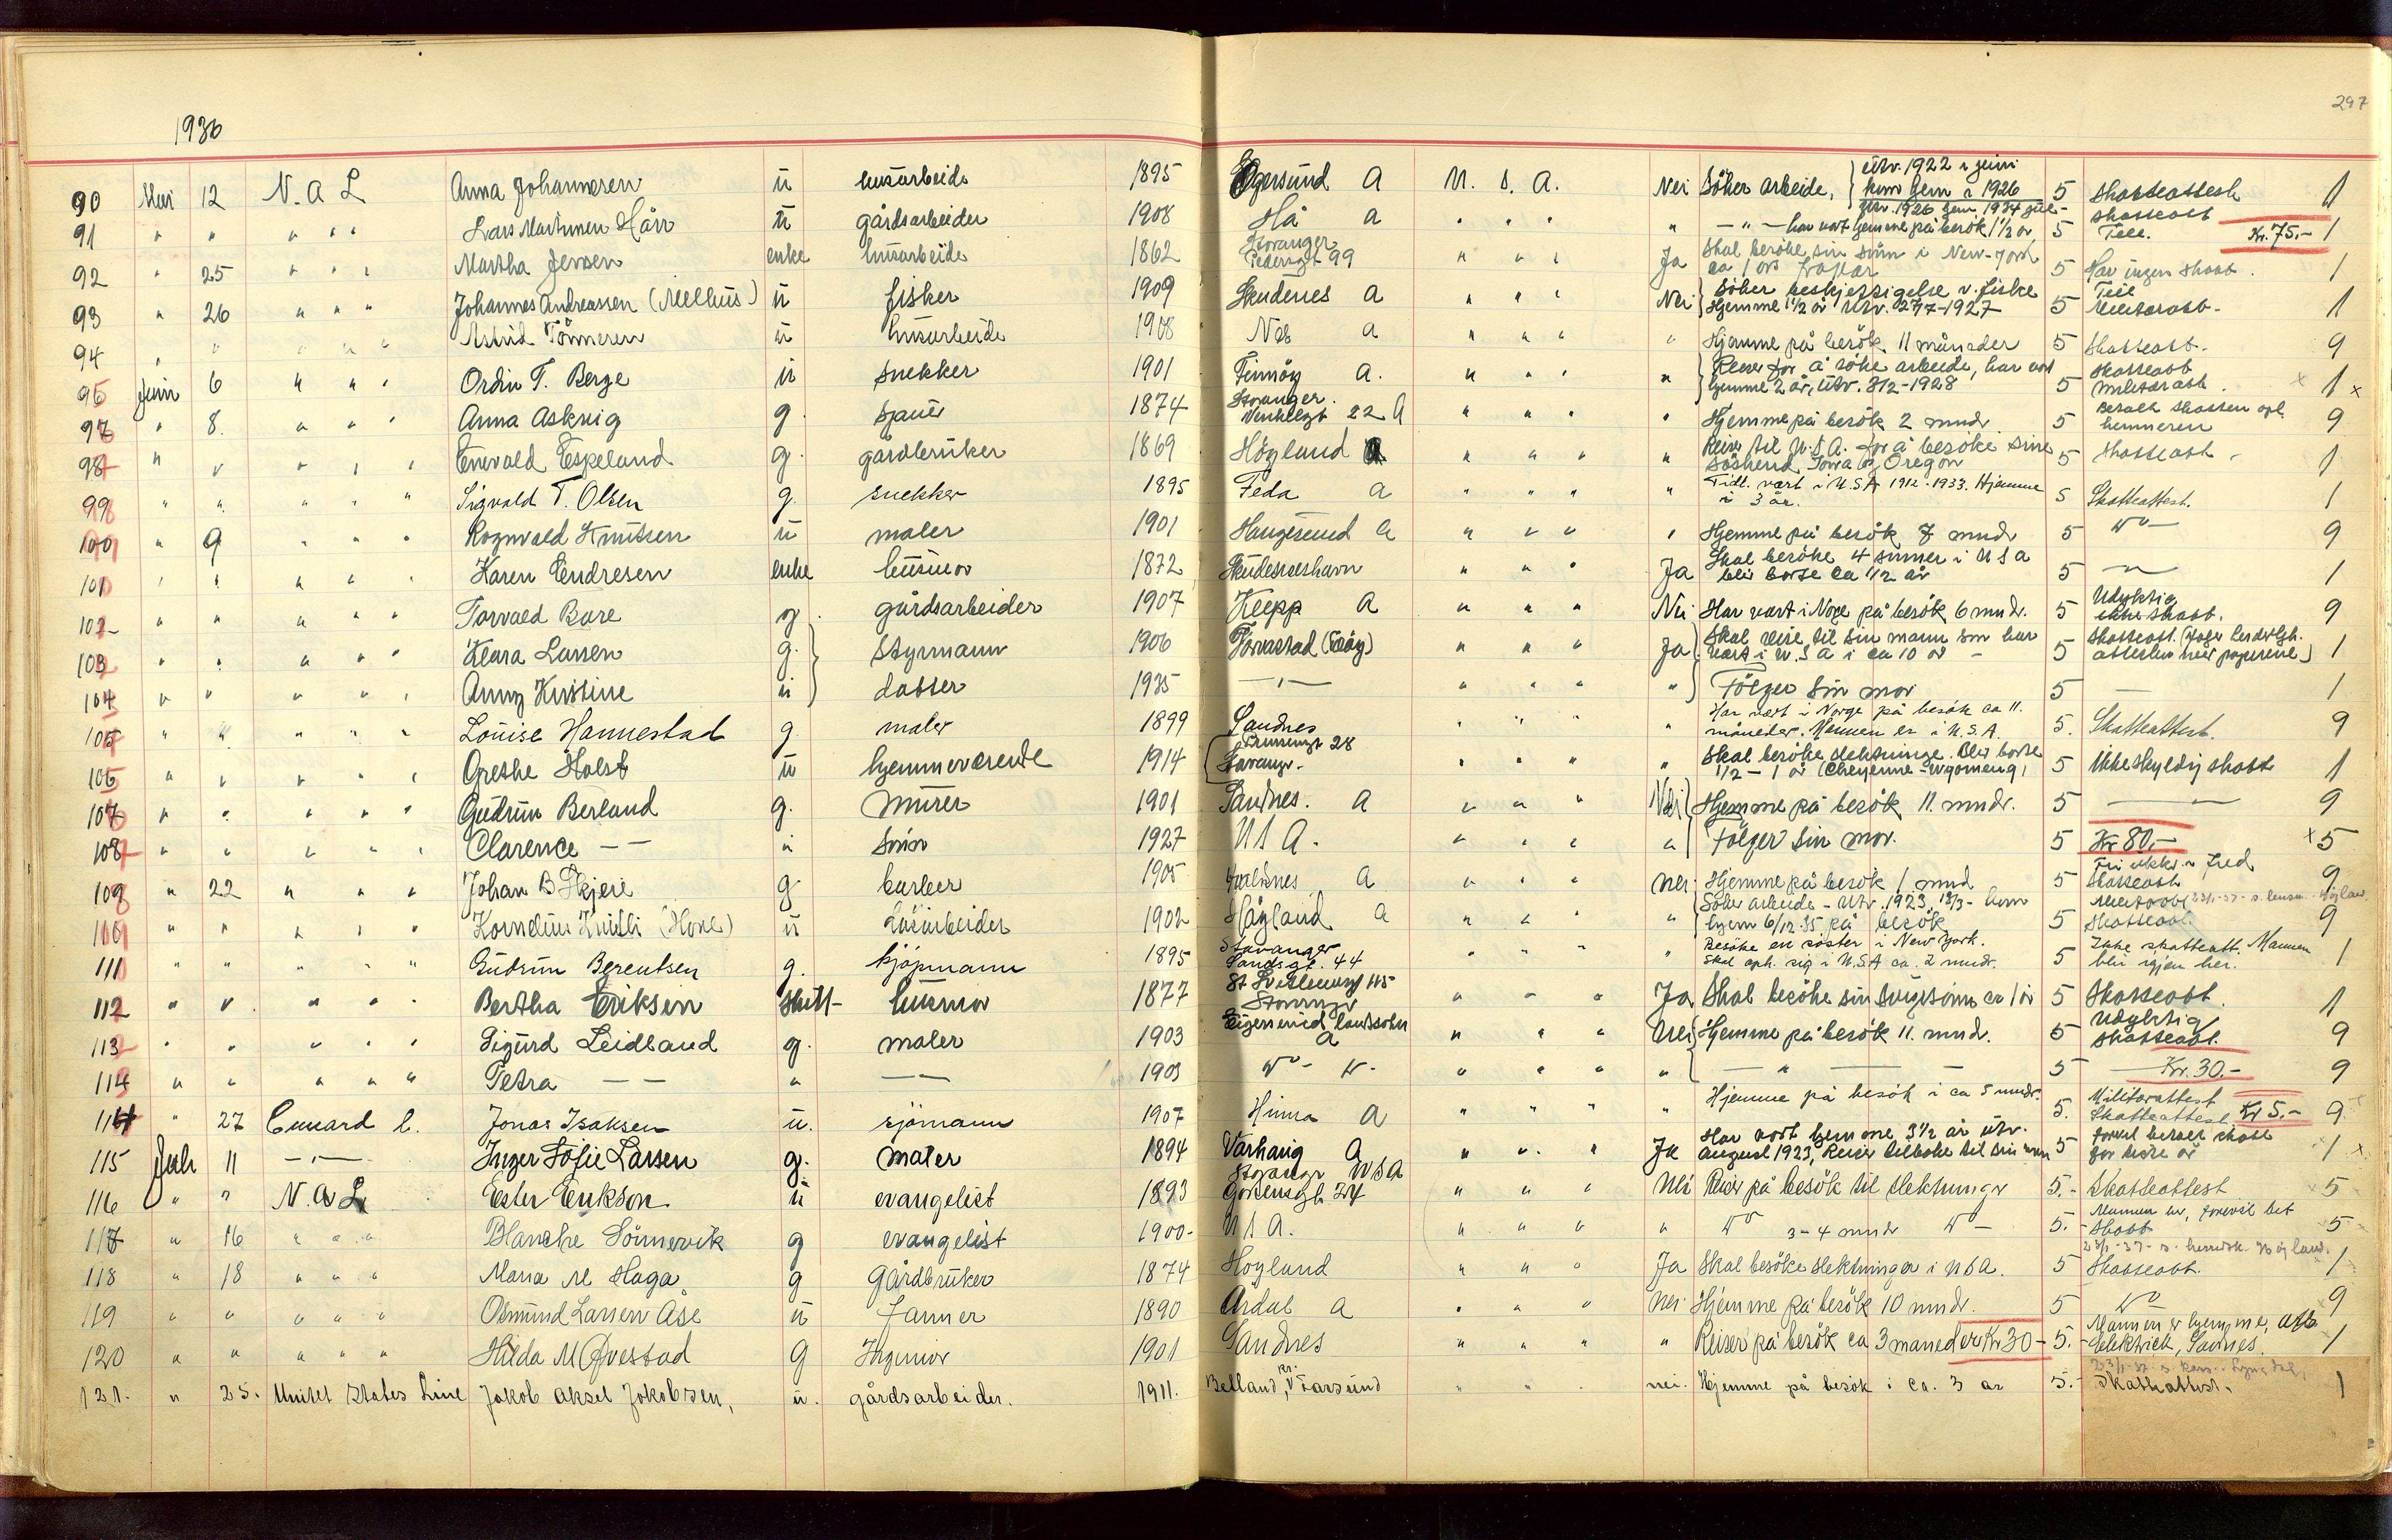 297
1936
90 Mai 12 N. A L Anna Johannesen u husarbeide 1895 Egersund A U. S. A. Nei Söker arbeide, utv. 1922 i juni kom hjem i 1926 utv. 1926 hjem 1934 5 Skatteattest 1
91 " " " " " Lars Martinsen Hårr u gårdsarbeider 1908 Hå a " " " " — " — har vært hjemme på besök 1½ år 5 Skatteatt Tele. Kr. 75.- 1
92 " 25 " " " Martha Jensen enke husarbeide 1862 Stavanger Pedersgt 99 " " " Ja Skal besöke sin sönn i New-York ca 1 års 5 Har ingen skatt. 1
93 " 26 " " " Johannes Andreassen (Melhus) u fisker 1909 Skudenes a " " " Nei Söker beskjeftigelse v. fiske Hjemme 1½ år Utv. 1927 5 Militæratt. 1
94 " " " " " Astrid Tönnesen u husarbeide 1908 Nes a " " " " Hjemme på besök 11 måneder 5 Skatteatt. 9
96 Juni 6 " " " Ordin T. Berge u snekker 1901 Finnöy a. " " " " Reiser for å söke arbeide, har vært hjemme 2 år, utv. 8/2-1928 5 Skatteatt Militæratt. x 1 x
97 " 8. " " " Anna Askvig g. 1874 Stavanger. 22 A " " " " Hjemme på besök 2 mndr 5 Betalt skatten opl. 9
98 " " " " " Enevald Espeland g. gårdbruker 1869 Högland A " " " " Reiser til U.S.A. for å besöke sine söskend Iowa og Oregon 5 Skatteatt. 1
99 " " " " " Sigvald T. Olsen g. snekker 1895 Feda a " " " " Tidl. vært i U.S.A 1912-1933. Hjemme i 3 år. 5 Skatteattest. 1
100 " 9 " " " Rognvald Knutsen u maler 1901 Haugesund a " " " " Hjemme på besök 7 mndr 5 do — 9
101 " " " " " Karen Endresen enke husmor 1872 Skudeneshavn " " " Ja Skal besöke 4 sönner i U S A blir borte ca 1/2 år 5 — " — 1
102 " " " " " Torvald Bore g. gårdsarbeider 1907 Klepp a " " " Nei Har vært i Norge på besök 6 mndr. 5 Udyktig ikke skatt. 9
103 " " " " " Klara Larsen g. Styrmann 1906 Torvastad (Feöy) " " " Ja Skal reise til sin mann som har vært i U.S A i ca 10 år — 5 Skatteatt. 1
104 " " " " " Anny Kristine u datter 1935 — " — " " " " Fölger sin mor 5 — 1
105 " " " " " Louise Hannestad g. maler 1899 Sandnes " " " " Har vært i Norge på besök ca 11. måneder. Mannen er i U.S.A. 5. Skatteattest. 9
106 " " " " " Grethe Holst u hjemmeværende 1914 28 Stavanger. " " " " Skal besöke slektninge. Blir borte 1/2 - 1 år (Cheyenne - Wyomeng) 5 Ikke skyldig skatt 1
107 " " " " " Gudrun Berland g. murer 1901 Sandnes. a " " " Nei Hjemme på besök 11. mndr. 5 — 9
108 " " " " " Clarence — — u sönn 1927 U S A. " " " " Fölger sin mor. 5 Kr 80.- x 5
109 " 22 " " " Johan B Skjeie g barber 1905 a " " " Nei Hjemme på besök 1 mnd 5 Skatteatt 9
110 " " " " " Kornelius Knutli u 1902 Högland a " " " " Söker arbeide - Utv. 1923, 18/3 - kom hjem 6/12-35 på besök 5 Skatteatt. 9
111 " " " " " Gudrun Berentsen g. kjöpmann 1895 Stavanger Sandsgt. 44 " " " " Besöke en söster i New York. Skal oph. sig i U.S.A ca. 2 mndr. 5 Ikke skatteatt. Mannen blir igjen her. 1
112 " " " " " Bertha Eriksen skilt- husmor 1877 Stavanger " " " Ja Skal besöke sin svigersönn ca 1 år 5 Skatteatt. 1
113 " " " " " Sigurd Leidland g. maler 1903 Eigersund landsokn a " " " Nei Hjemme på besök 11. mnd. 5 Udyktig skatteatt. 9
114 " " " " " Petra — — " — " — 1903 do - do - " " " " — " — 5 — Kr. 30.- 9
114 " 27 Cunard L. Jonas Isaksen u. sjömann 1907 Hinna a " " " " Hjemme på besök i ca 5 mndr. 5. Militærattest Skatteattest Kr 5.- 9
115 Juli 11 — " — Inger Sofie Larsen g. maler 1894 Varhaug a " " " Ja Har vært hjemme 3½ år utv. august 1923, Reiser tilbake til sin mann 5 betalt skatt for siste år 1 x
116 " " N. A L Ester Erikson u evangelist 1893 Stavanger U S A " " " Nei Reiser på besök til slektninger 5.- Skatteattest 5
117 " 16 " " " Blanche Sömmevik g evangelist 1900- U S A. " " " " do 3-4 mndr do — 5.- Skatt 5
118 " 18 " " " Maria M Haga g Gårdbruker 1874 Hogland " " " Ja Skal besöke slektninger i U S A. 5 Skatteatt. 1
119 " " " " " Osmund Larsen Åse u Farmer 1890 Årdal a " " " Nei Hjemme på besök 10 mndr. 5 do 9
120 " " " " " Hilda M Qvestad g Ingeniör 1901 Sandnes " " " " Reiser på besök ca 3 måneder Kr 30- 5.- Mannen er hjemme, Elektrick, Sannes. 1
121. " 25. Unitet States Line Jakob Aksel Jakobsen, u. gårdsarbeider. 1911. Belland, Farsund " " " nei. Hjemme på besök i ca. 3 år 5.- Skatteattest. 1